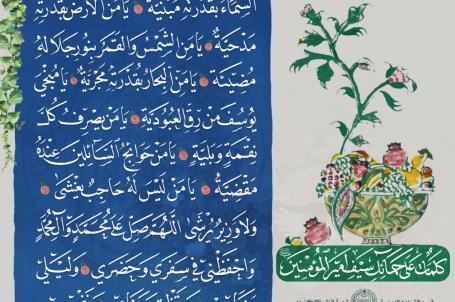 السَّمَاءُ بِقُدْرَتِهِ مَبْنِيَّةٌ يَا مَنِ الْأَرْضُ بِقُدْرَتِهِ
مَدْحِيَّةٌ يَا مَنِ الشَّمْسُ وَالْقَمَرُ بِنُورِ جَلَالِهِ
مُضِيئَةٌ يَا مَنِ الْبِحَارُ بِقُدْرَتِهِ مَجْرِيَّةٌ يَا مُنْجِيَ
يُوسُفَ مِنْ رِقِّ الْعُبُودِيَّةِ يَا مَنْ يَصْرِفُ كُلَّ
نِقْمَةٍ وَبَلِيَّةٍ يَا مَنْ حَوَائِجُ السَّائِلِينَ عِنْدَهُ
مَقْضِيَّةٌ يَا مَنْ لَيْسَ لَهُ حَاجِبٌ يُغْشَى
وَلَا وَزِيرٌ يُرْشَى اللَّهُمَّ صَلِّ عَلَى مُحَمَّدٍ وَآلِ مُحَمَّدٍ
وَاحْفَظْنِي فِي سَفَرِي وَحَضَرِي وَلَيْلِي
كلمات على حمائل سيف أمير المؤمنين